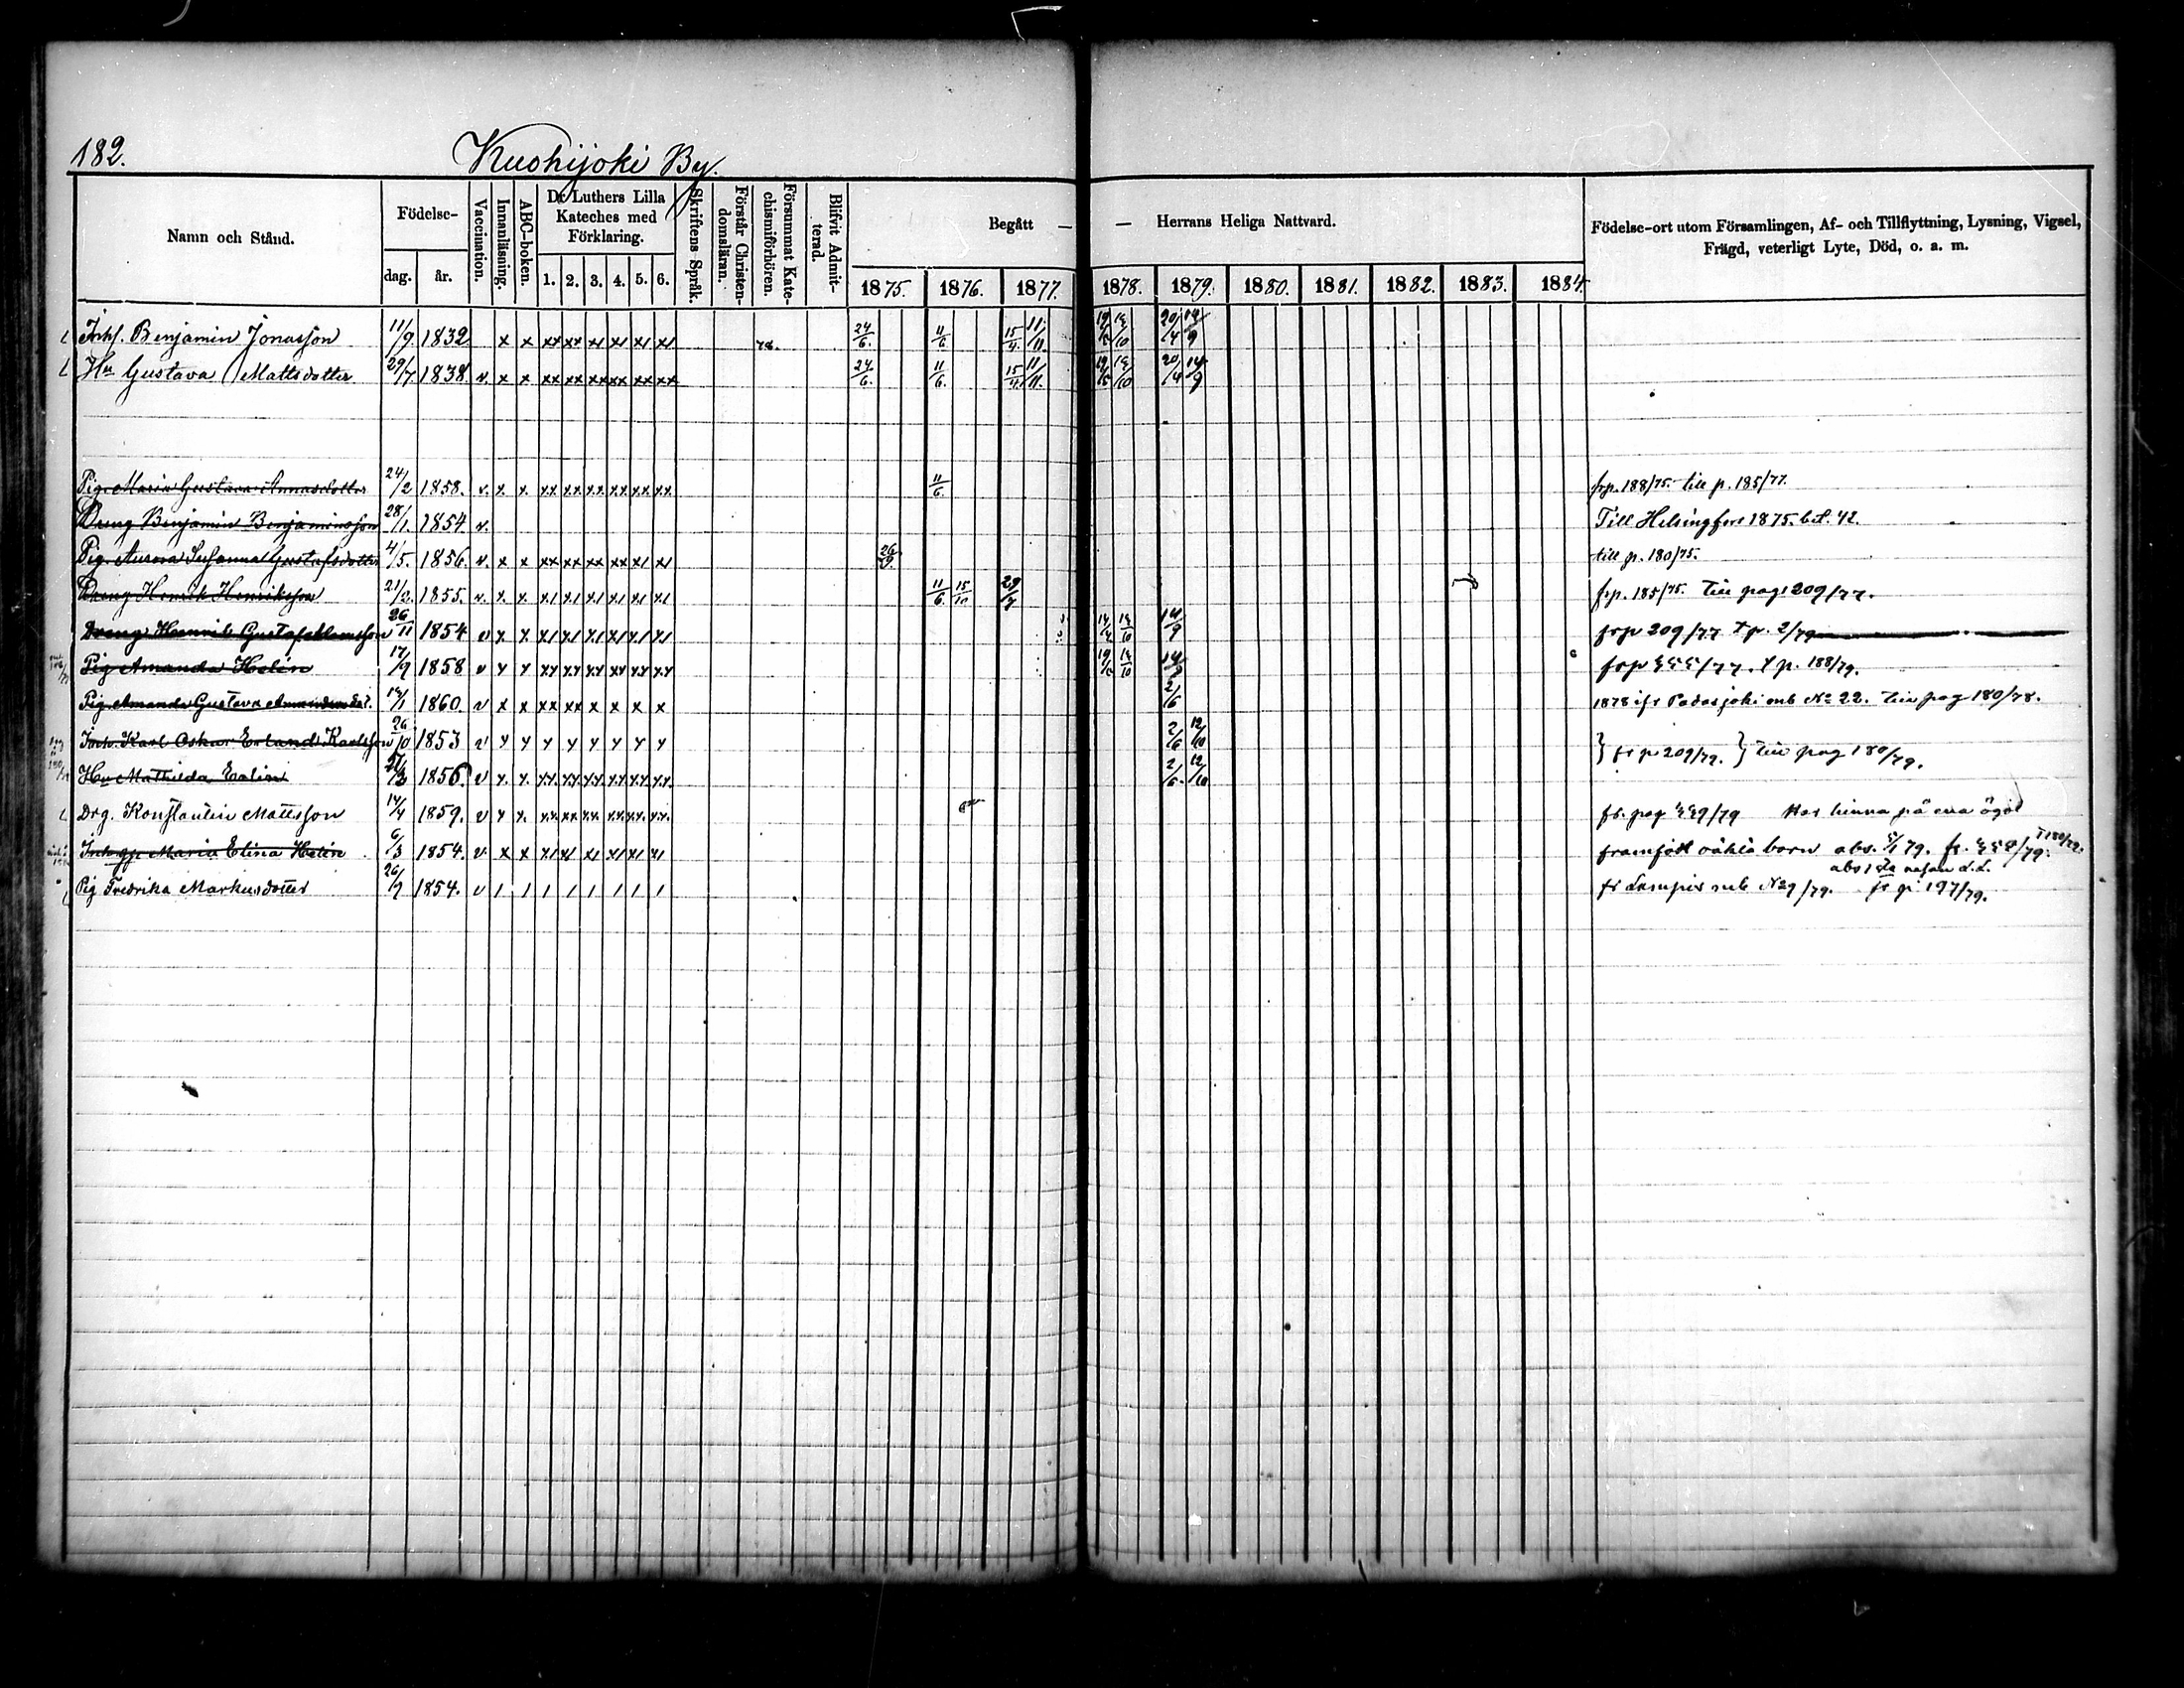 182.
Kuohijoki By.
Namn och Stånd.
Födelse-
dag. år.
Vaccination.
Innanläsning.
ABC-boken.
Dr Luthers Lilla
Kateches med
Förklaring.
1. 2. 3. 4. 5. 6.
Skriftens Språk.
Förstår Christen-
domsläran.
Försummat Kate-
chismiförhören.
Blifvit Admit-
terad.
Begått — — Herrans Heliga Nattvard.
1875. 1876. 1877. 1878. 1879. 1880. 1881. 1882. 1883. 1884.
Födelse-ort utom Församlingen, Af- och Tillflyttning, Lysning, Vigsel,
Frägd, veterligt Lyte, Död, o. a. m.
Inhs. Benjamin Jonasson 11/9 1832 x x xx xx x1 x1 x1 x1 78. 24/6. 11/6 15/4 11/11 20/4 14/9
Hu Gustava Mattsdotter 29/7 1838 v. x x xx xx xx xx xx xx 24/6. 11/6. 15/4 11/11. 20/4 14/9
Pig. Maria Gustava Annasdotter 24/2 1858. v. x x xx xx xx xx xx xx 11/6. frp. 188/75. till p. 185/77.
Dreng Benjamin Benjaminsson 28/1. 1854 v. Till Helsingfors 1875. bet. 42.
Pig. Aurora Susanna Gustafsdotter 4/5. 1856. v. x x xx xx xx xx x1 x1 26/9. till p. 180/75.
Dreng Henrik Henriksson 21/2. 1855. v. x x x1 x1 x1 x1 x1 x1 11/6. 15/10 29/7 frp. 185/75. till pag. 209/77.
Dreng Henrik Gustaf 26/11 1854 v x x x1 x1 x1 x1 x1 x1 14/9 frp 209/77 t p. 2/79
Pig Amanda Helin 17/9 1858 v x x xx xx xx xx xx xx 14/9 t p. 188/79.
Pig. Amanda Gustava 1860. v x x xx xx x x x x 2/6 1878 ifr Padasjoki sub No 22. till pag 180/78.
Inh. Karl Oskar Erland Karlsson 26/10 1853 v x x x x x x x x 2/6 12/10 } fr p 209/79. } till pag 180/79.
Hu Mathilda Evelin 1856. v x. x. xx xx xx xx xx xx 2/6. 12/10
Drg. Konstantin Mattsson 14/4 1859. v x x. xx. xx xx. xx. xx. xx. Har hinna på ena ögat
Maria Elina Helin 6/3 1854. v x x x1 x1 x1 x1 x1 x1 framfött oäkta barn abs. 79.
Pig Fredrika Markusdotter 26/7 1854. v 1 1 1 1 1 1 1 1 fr Lampis sub N 29/79. fr p. 197/79.